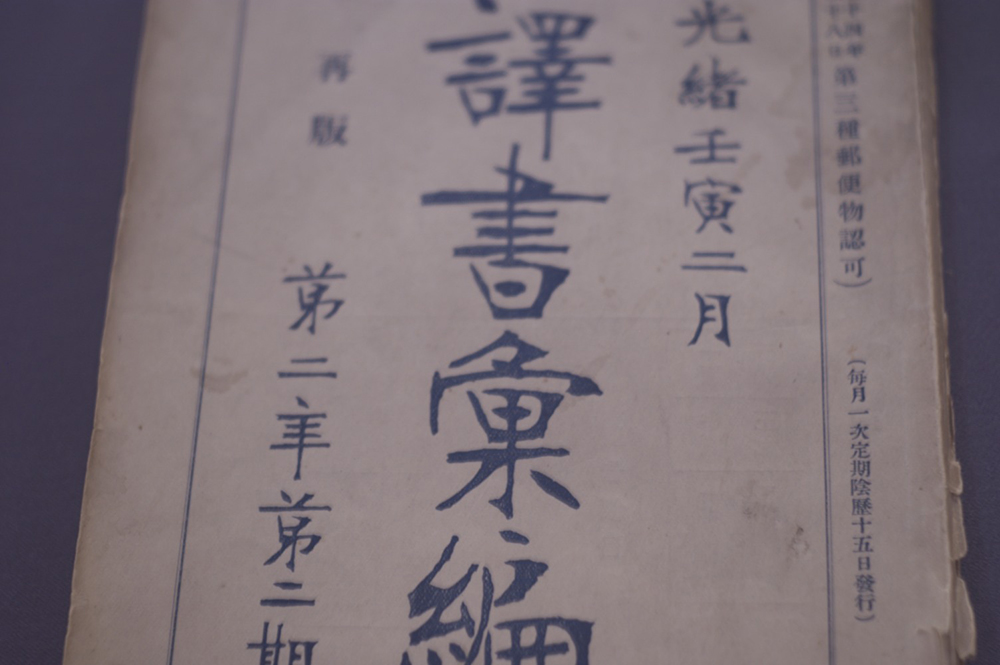 十四年
十八日第三種郵便物認可）
（每月一次定期陰曆十五日發行）
光緒壬寅二月
譯書彙編
再版
第二年第二期